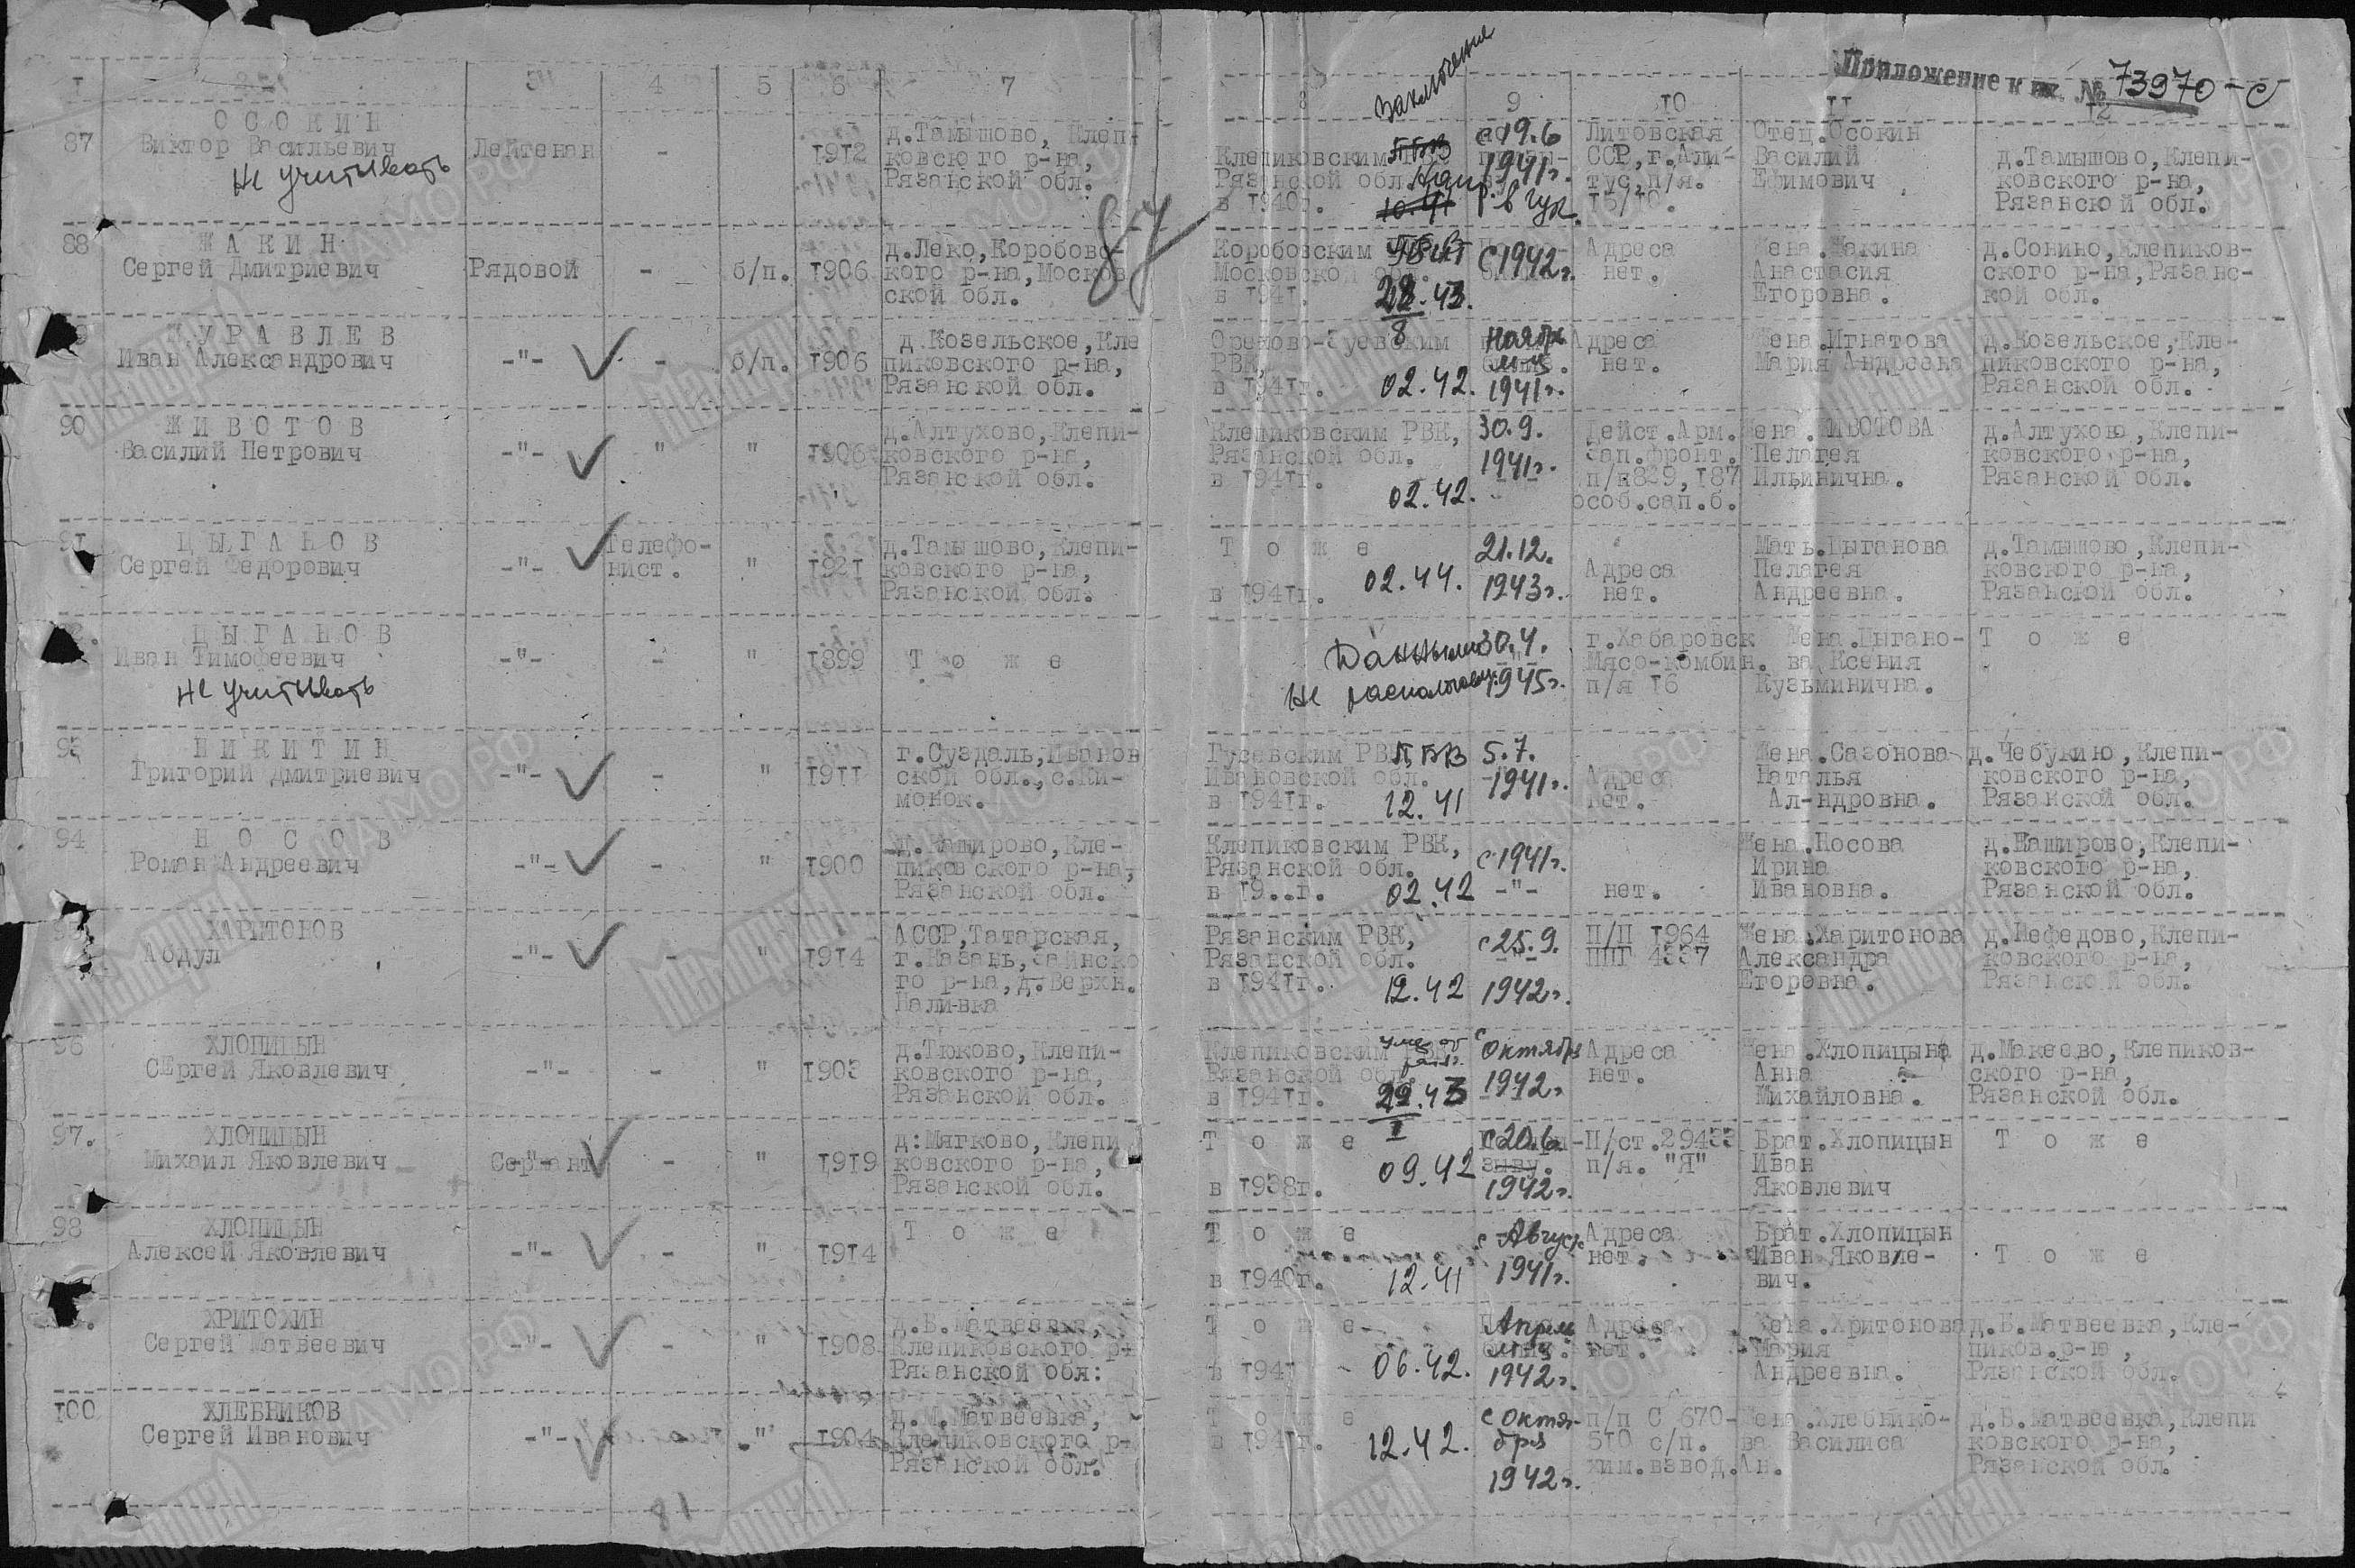 Заключение
Приложение к вх. № 73970-с
1 2 3 4 5 6 7 8 9 10 11 12
87 ОСОКИН
Виктор Васильевич Лейтенан - 1912
Не учитывать
д.Тамышово, Клепи-
ковского р-на,
Рязанской обл.
Клепиковским
Рязанской обл.
в 1940г.
10.41
19.6
1941г.
Литовская
ССР, г.Али-
тус, п/я.
15/10.
Отец.Осокин
Василий
Ефимович
д.Тамышово, Клепи-
ковского р-на,
Рязанской обл.
87
88 ЖАКИН
Сергей Дмитриевич Рядовой - б/п. 1906
д.Леко, Коробовс-
кого р-на, Москов
ской обл.
Коробовским
Московской обл.
в 1941г.
28.43.
8
с 1942г.
Адреса
нет.
Жена.Жакина
Анастасия
Егоровна.
д.Сонино, Клепиков-
ского р-на, Рязанс-
кой обл.
ЖУРАВЛЕВ
Иван Александрович -"- - б/п. 1906
д.Козельское, Кле
пиковского р-на,
Рязанской обл.
Орехово-Зуевским
РВК,
в 1941г.
02.42.
Ноябрь
м-ц
1941г.
Адреса
нет.
Жена.Игнатова
Мария Андреевна
д.Козельское, Кле-
пиковского р-на,
Рязанской обл.
90 ЖИВОТОВ
Василий Петрович -"- " " 1906
д.Алтухово, Клепи-
ковского р-на,
Рязанской обл.
Клепиковским РВК,
Рязанской обл.
в 1941г.
02.42.
30.9.
1941г.
Дейст.Арм.
Зап.фронт.
п/п829, 187
особ.сап.б.
Жена.ЖИВОТОВА
Пелагея
Ильинична.
д.Алтухово, Клепи-
ковского р-на,
Рязанской обл.
91 ЦЫГАНОВ
Сергей Федорович -"- Телефо-
нист. " 1921
д.Тамышово, Клепи-
ковского р-на,
Рязанской обл.
Тоже
в 1941г.
02.44.
21.12.
1943г.
Адреса
нет.
Мать.Цыганова
Пелагея
Андреевна.
д.Тамышово, Клепи-
ковского р-на,
Рязанской обл.
ЦЫГАНОВ
Иван Тимофеевич -"- - " 1899 Тоже
Не учитывать
Данными
не располагаем
30.4.
1945г.
г.Хабаровск
Мясо-комбин.
п/я 16
Жена.Цыгано-
ва Ксения
Кузьминична.
Тоже
93 НИКИТИН
Григорий Дмитриевич -"- - " 1911
г.Суздаль, Иванов
ской обл., с.Ки-
монок.
Гусевским РВК,
Ивановской обл.
в 1941г.
12.41
5.7.
1941г.
Адреса
нет.
Жена.Сазонова
Наталья
Ал-ндровна.
д.Чебукино, Клепи-
ковского р-на,
Рязанской обл.
94 НОСОВ
Роман Андреевич -"- - " 1900
д.Каширово, Кле-
пиковского р-на,
Рязанской обл.
Клепиковским РВК,
Рязанской обл.
в 19..г.
02.42
с 1941г.
-"-
нет.
Жена.Носова
Ирина
Ивановна.
д.Каширово, Клепи-
ковского р-на,
Рязанской обл.
ХАРИТОНОВ
Абдул -"- - " 1914
АССР, Татарская,
г.Казань, Заинско
го р-на, д.Верхн.
Налимка
Рязанским РВК,
Рязанской обл.
в 1941г.
12.42
с 25.9.
1942г.
П/П 1964
ППГ 4337
Жена.Харитонова
Александра
Егоровна.
д.Нефедово, Клепи-
ковского р-на,
Рязанской обл.
96 ХЛОПИЦЫН
СЕргей Яковлевич -"- - " 1903
д.Тюково, Клепи-
ковского р-на,
Рязанской обл.
Клепиковским РВК
Рязанской обл.
в 1941г.
умер от
ран
29.43
I
с
Октября
1942г.
Адреса
нет.
Жена.Хлопицына
Анна
Михайловна.
д.Макеево, Клепиков-
ского р-на,
Рязанской обл.
97. ХЛОПИЦЫН
Михаил Яковлевич Сержант - " 1919
д:Мягково, Клепи
ковского р-на,
Рязанской обл.
Тоже
в 1938г.
09.42
с 20.6
1942г.
П/ст.29433
п/я. "Я"
Брат.Хлопицын
Иван
Яковлевич
Тоже
98 ХЛОПИЦЫН
Алексей Яковлевич -"- - " 1914 Тоже
Тоже
в 1940г.
12.41
с Август
1941г.
Адреса
нет.
Брат.Хлопицын
Иван Яковле-
вич.
Тоже
ХРИТОХИН
Сергей Матвеевич -"- - " 1908
д.Б.Матвеевка,
Клепиковского р-
Рязанской обл:
Тоже
в 1941
06.42.
Апрель
м-ц
1942г.
Адреса
нет.
Жена.Хритонова
Мария
Андреевна.
д.Б.Матвеевка, Кле-
пиков.р-на,
Рязанской обл.
100 ХЛЕБНИКОВ
Сергей Иванович -"- " 1904
д.М.Матвеевка,
Клепиковского р-
Рязанской обл.
Тоже
в 1941г.
12.42.
с Октя-
бря
1942г.
п/п С 670-
510 с/п.
хим.взвод.
Жена.Хлебнико-
ва Василиса
Ан.
д.Б.Матвеевка, Клепи
ковского р-на,
Рязанской обл.